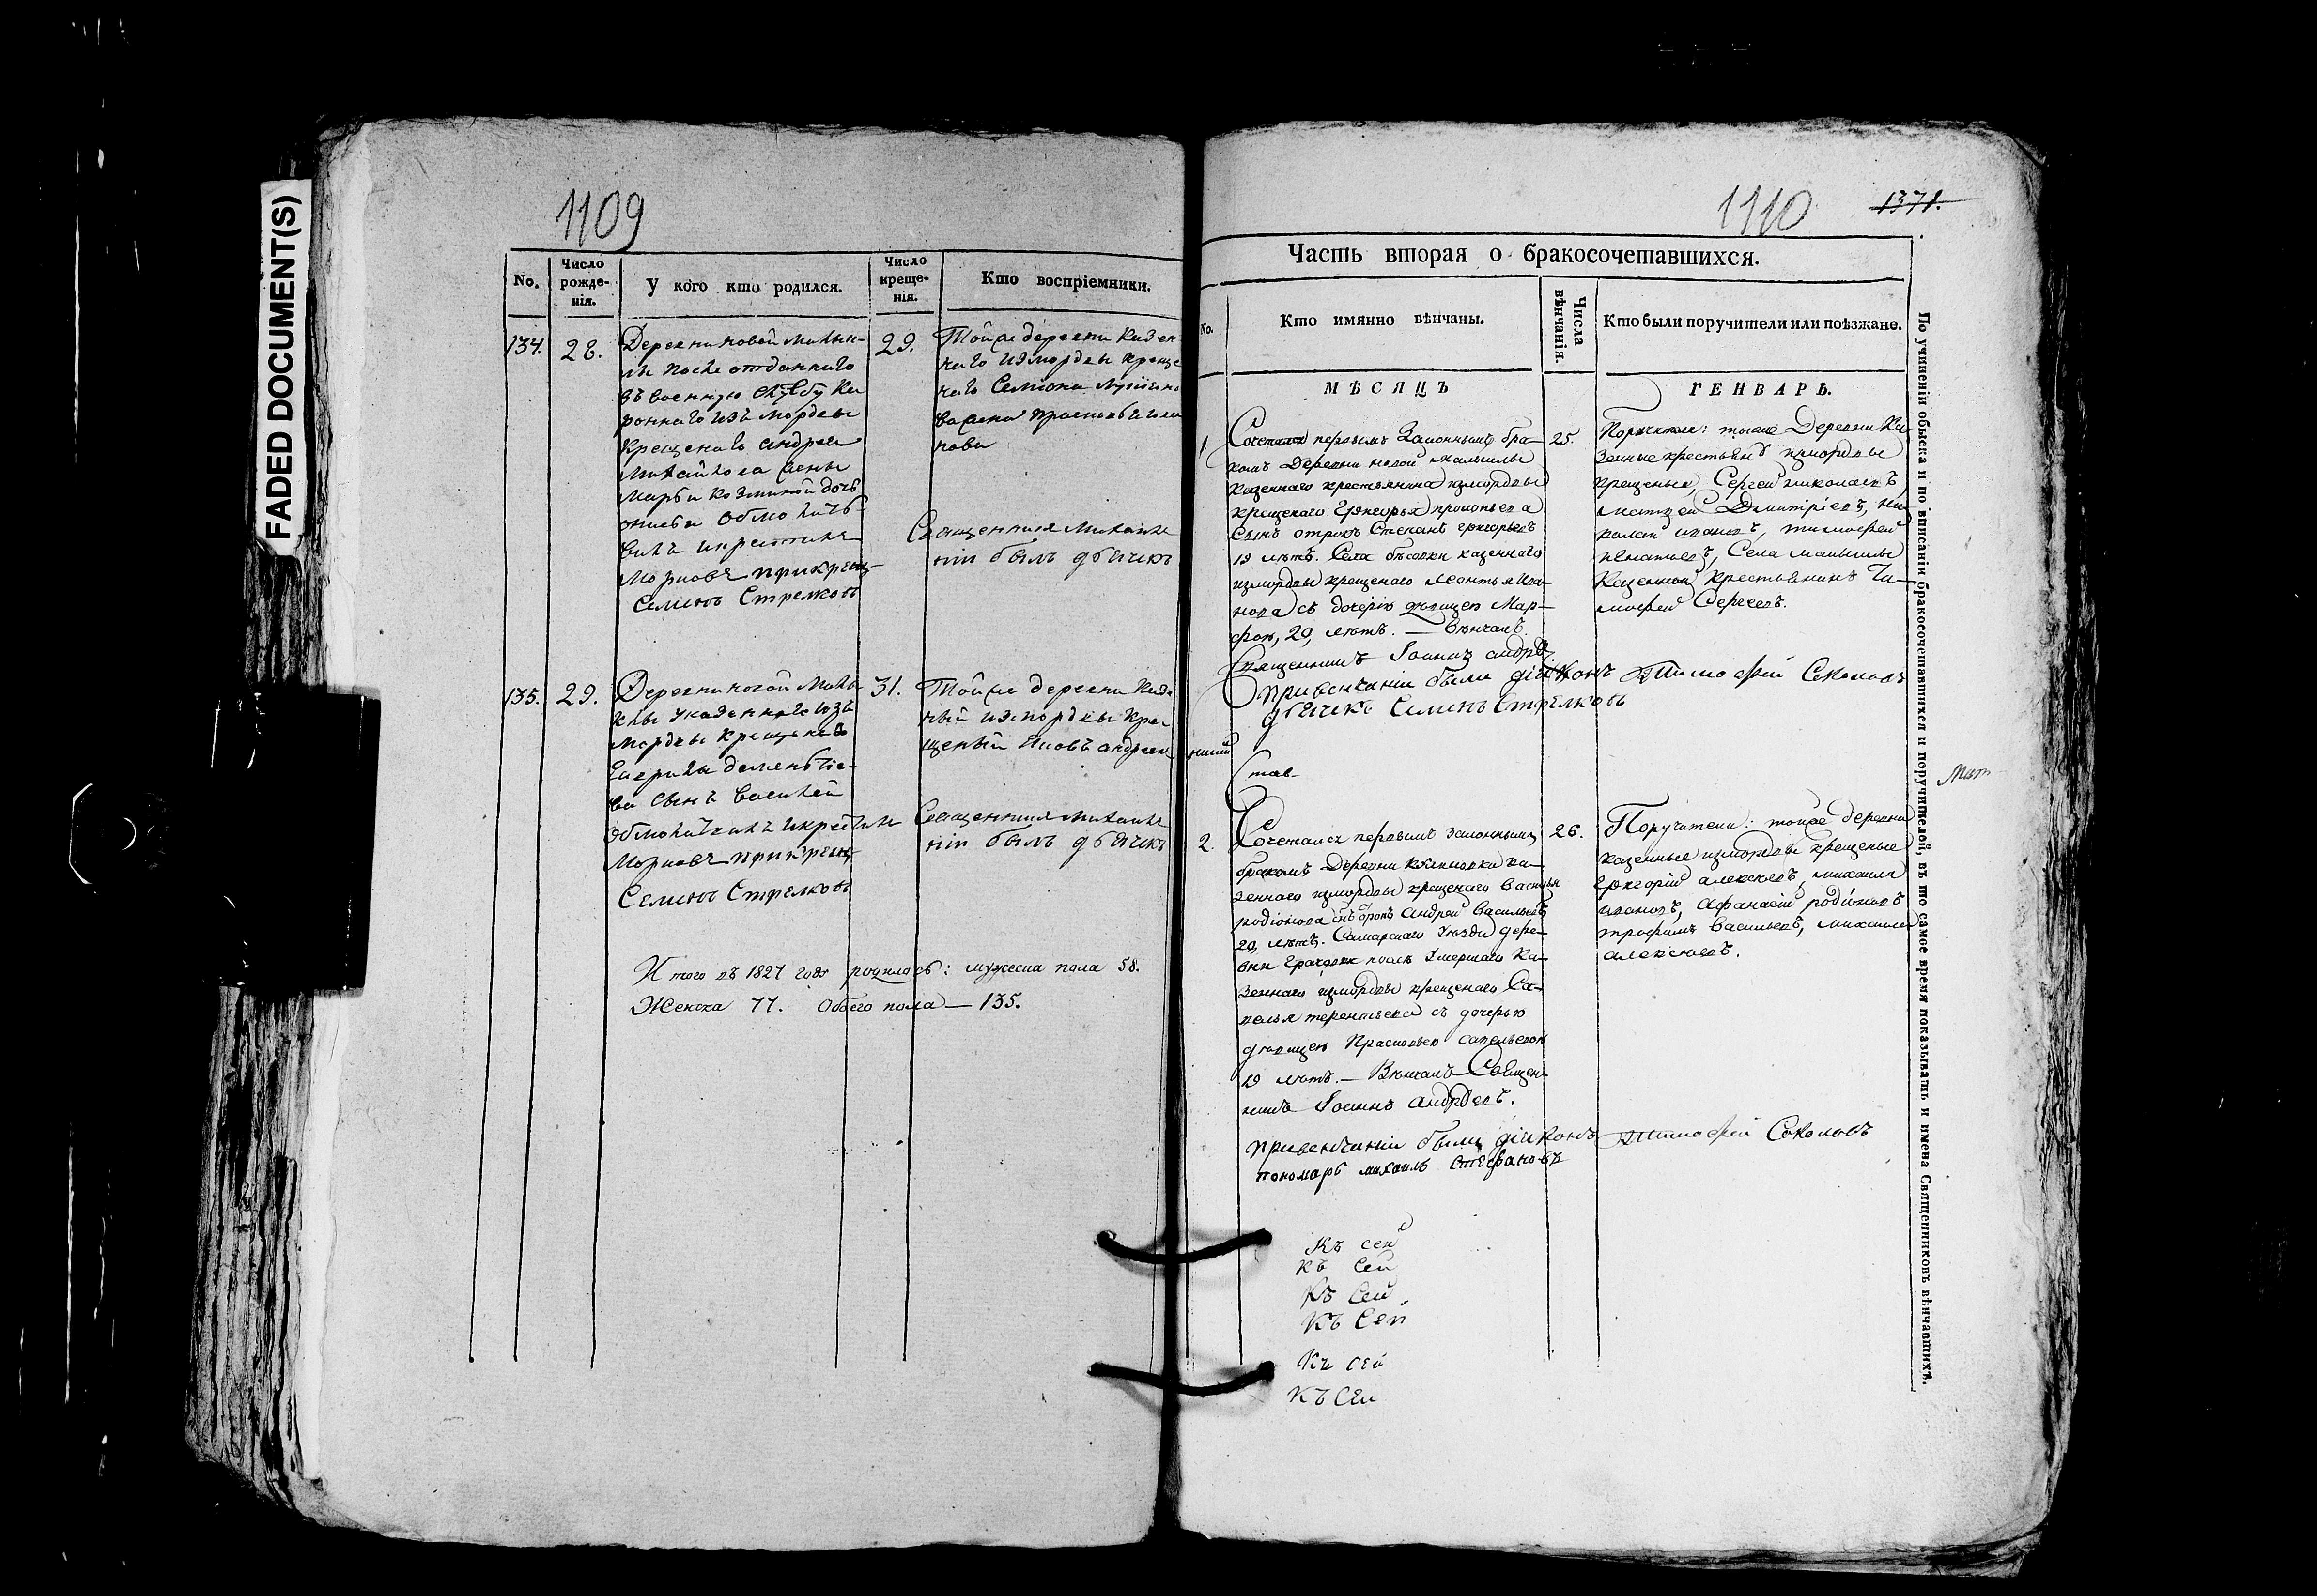 FADED DOCUMENT(S)
1109
No.
Число рожде-
нія.
У кого кто родился.
Число креще-
нія.
Кто воспріемники.
134.
28.
Деревни новой Малык-
лы после отданнаго
въ военную службу ка
зеннаго изъ мордвы
крещенаго андрея
Михайлова жены
Марьи Козминой дочь
Обмоличв-
овилъ икрестилъ
Морковъ прикрещ-
Семионъ Стрелковъ
29.
Тойже деревни Казен
наго измордвы креще
наго Семиона
жена
нова
Священникъ Михаилъ
ніи былъ дьячекъ
135.
29.
Деревни новой Малы
клы указеннаго изъ
Мордвы крещенаго
Гаврила дементіе-
ва сынъ василей
обмоличвилъ икрестилъ
Морковъ прикрещ-
Семионъ Стрелковъ
31.
Тойже деревни Казе
ный измордвы кре-
щеный Яковъ андреев
Священникъ Михаилъ
ніи былъ дьячекъ
Итого въ 1827 годѣ родилось: мужеска пола 58.
Женска 77. Обоего пола — 135.
1110
1371.
Часть вторая о бракосочетавшихся.
No.
Кто имянно вѣнчаны.
Числа
вѣнчанія.
Кто были поручители или поѣзжане.
МѢСЯЦЪ
ГЕНВАРЬ.
1
Сочетался первымъ Законнымъ бра-
комъ Деревни новой малыклы
Казеннаго крестьянина измордвы
крещенаго Григорья прокопьева
Сынъ отрокъ Степанъ григорьевъ
19 лѣтъ. Села бѣсовки казеннаго
измордвы крещенаго леонтья Ива-
нова съ дочерію дѣвицею Мар-
фою, 20, лѣтъ. — Вѣнчалъ
Священникъ Іоаннъ андрѣевъ
привенчаніи были діаконъ Тимофей Соколовъ
дьячекъ Семионъ Стрелковъ
25.
Поручители: тояже Деревни Ка-
зенные крестьяне измордвы
крещеные, Сергей николаевъ,
матвей Димитріевъ, ни-
колай ивановъ, тимофей
игнатьевъ, Села малыклы
Казенной крестьянинъ Ти-
мофей Сергеевъ.
ший
Став-
2.
Сочетался первымъ законнымъ
бракомъ Деревни ка-
зеннаго измордвы крещенаго Василья
родіонова сынъ отрокъ Андрей Васильевъ
20, лѣтъ. Самарскаго Уѣзда дере-
вни Грачовки послѣ Умершаго Ка-
зеннаго измордвы крещенаго Са-
велья терентьева съ дочерью
дѣвицею Прасковьею савельевою
19 лѣтъ. — Вѣнчалъ Священ-
никъ Іоаннъ Андрѣевъ.
привенчаніи были діаконъ Тимофей Соколовъ
пономарь михаилъ Стефановъ
26.
Поручители: тояже деревни
казенные измордвы крещеные
Григорій алексѣевъ, михаила
ивановъ, Афанасій родіоновъ
трофимъ Васильевъ, михаила
алексѣевъ.
Къ сей
Къ сей
Къ сей
Къ сей
Къ сей
Къ сей
По учиненіи обыска и по вписаніи бракосочетавшихся и поручителей, въ то самое время показывать и имена Священниковъ вѣнчавшихъ.